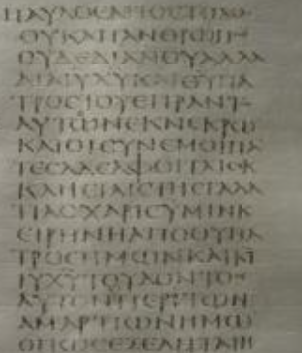 ΠΑΥΛΟϹΑΠΟϹΤΟΛΟ
ΟΥΚΑΠΑΝΘΡΩΠΩ
ΟΥΔΕΔΙΑΝΟΥΑΛΛΑ
ΔΙΑΙΥΧΥΚΑΙΘΥΠΑ
ΤΡΟϹΤΟΥΕΓΙΡΑΝΤ
ΑΥΤΟΝΕΚΝΕΚΡΩ
ΚΑΙΟΙϹΥΝΕΜΟΙΠΑ
ΤΕϹΑΔΕΛΦΟΙΤΑΙϹΕΚ
ΚΛΗϹΙΑΙϹΤΗϹΓΑΛΑ
ΤΙΑϹΧΑΡΙϹΥΜΙΝΚ
ΕΙΡΗΝΗΑΠΟΘΥΠΑ
ΤΡΟϹΗΜΩΝΚΑΙΚΥ
ΙΥΧΥΤΟΥΔΟΝΤΟϹ
ΑΥΤΟΝΠΕΡΙΤΩΝ
ΑΜΑΡΤΙΩΝΗΜΩ
ΟΠΩϹΕΞΕΛΗΤΑΙΗ